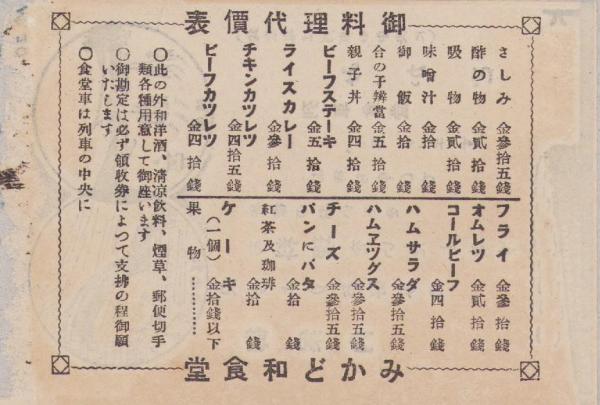 御料理代價表
さしみ 金參拾五錢
酢の物 金貳拾錢
吸物 金貳拾錢
味噌汁 金拾錢
御飯 金拾錢
合の子辨當 金五拾錢
親子丼 金四拾錢
ビーフステーキ 金五拾錢
ライスカレー 金參拾錢
チキンカツレツ 金四拾五錢
ビーフカツレツ 金四拾錢
フライ 金參拾錢
オムレツ 金貳拾錢
コールビーフ 金四拾錢
ハムサラダ 金參拾五錢
ハムエッグス 金參拾五錢
チーズ 金參拾五錢
パンにバタ 金拾錢
紅茶及珈琲 金拾錢
ケーキ(一個) 金拾錢以下
果物…………
○此の外和洋酒、清凉飲料、煙草、郵便切手
類各種用意して御座います
○御勘定は必ず領收劵によつて支拂の程御願
いたします
○食堂車は列車の中央に
みかど和食堂